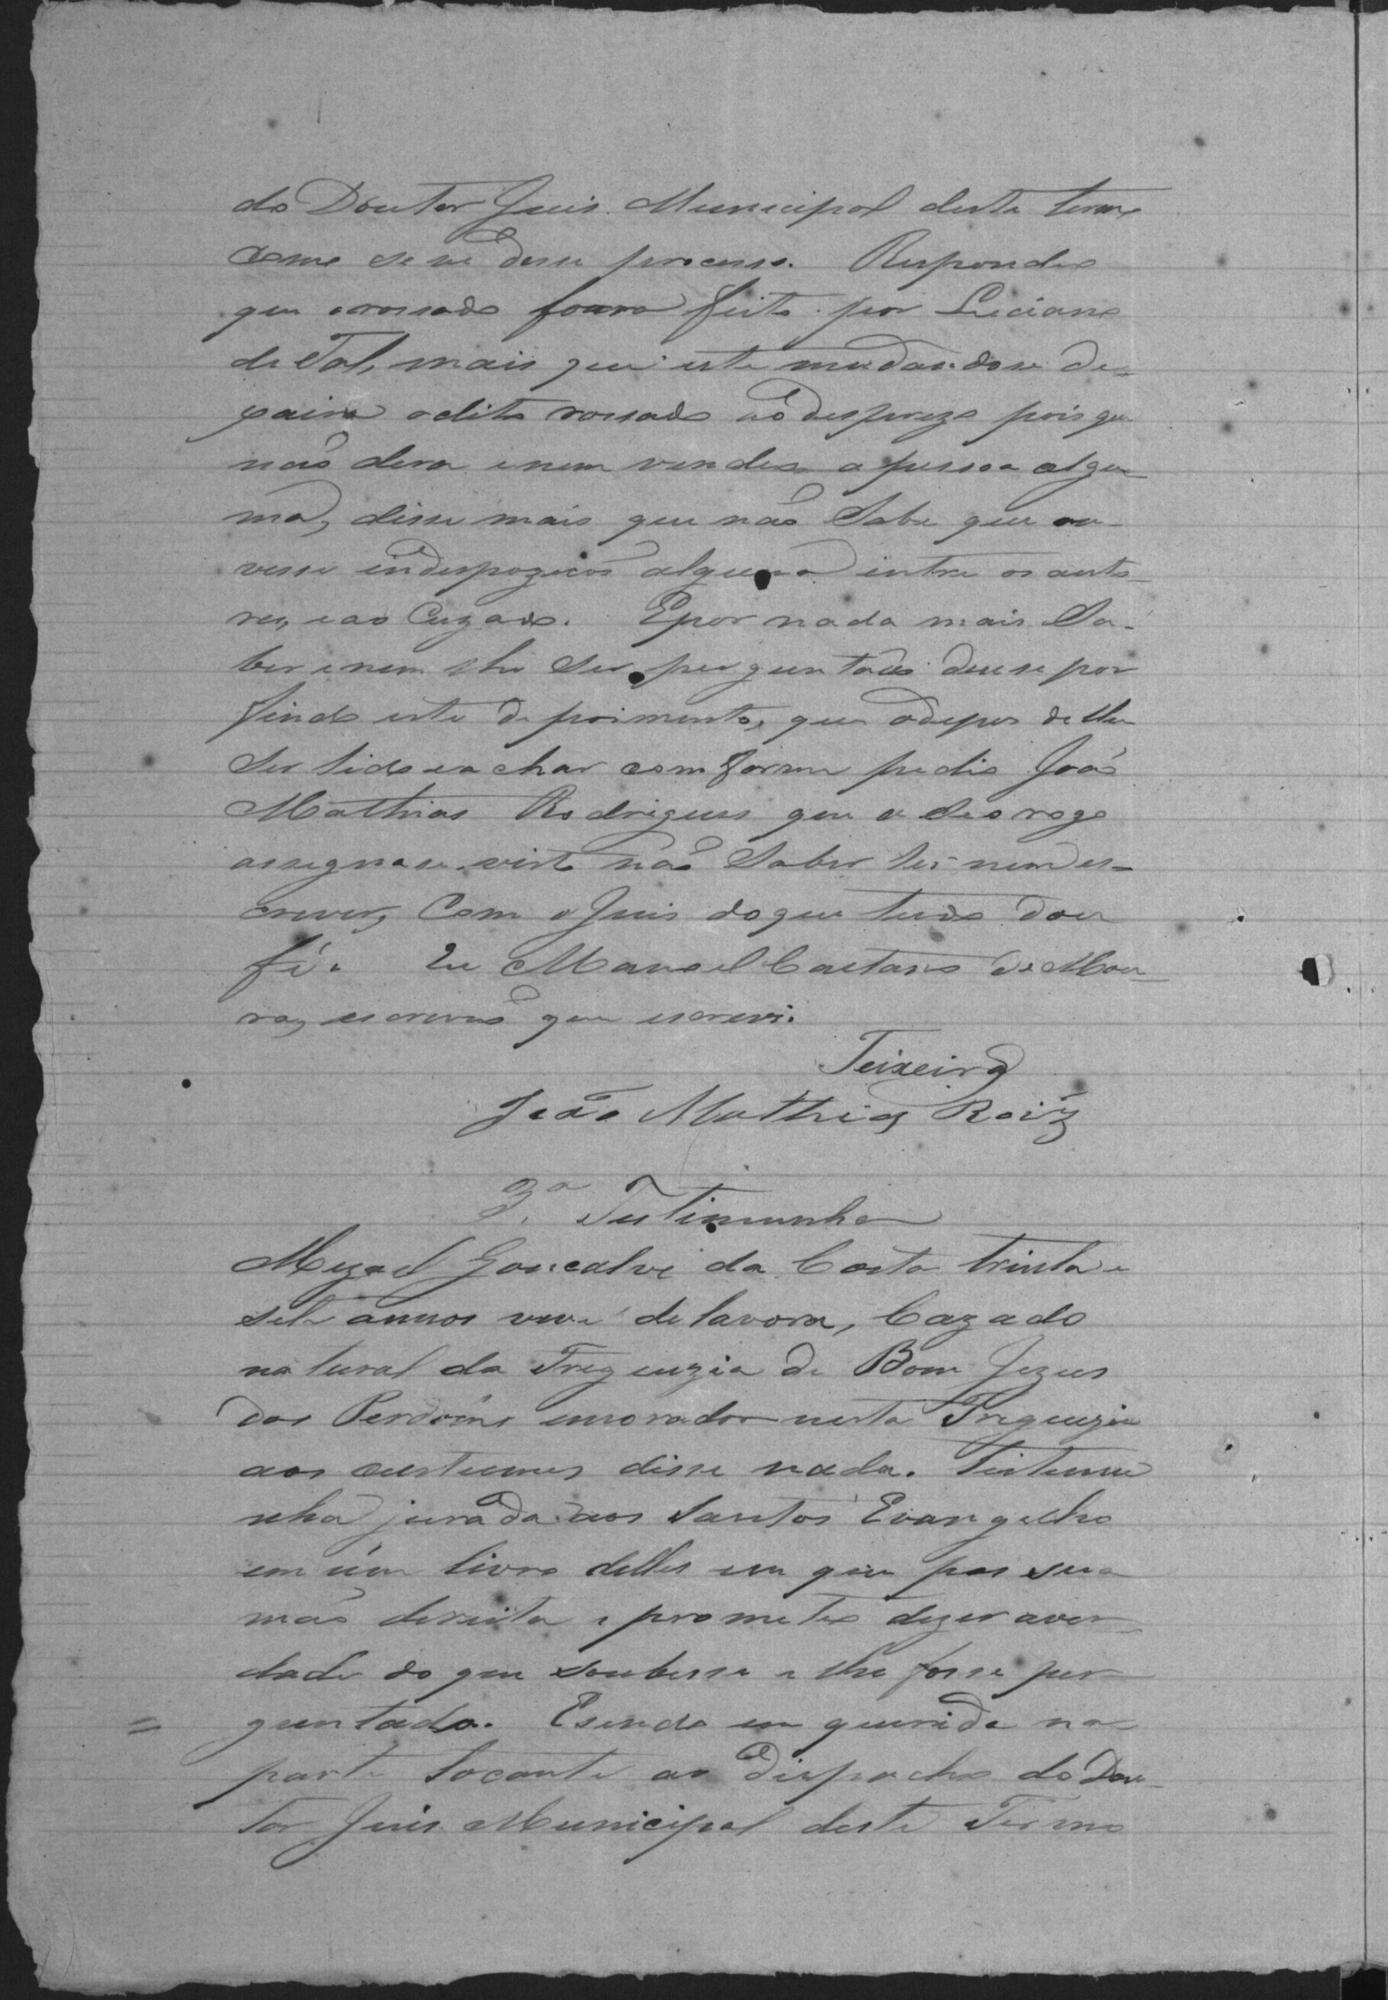 do Doutor Juis Municipal deste termo
como se ve desse processo. Respondeo
que o rossado foura feito por Luciano
de Tal, mais que este mudandose de-
xaira o dito rossado aõ desprezo pois que
não dera e nem vendeo a pessoa algu-
ma, disse mais que não Sabe que ou-
vesse indespozicõs alguma entre os auto-
res, e ao Cuzado. E por nada mais Sa-
ber e nem lhe Ser perguntado deuse por
findo este depoimento, que odepos delhe
Ser lido e a char comforme pedio João
Mathias Rodrigues que a Seo rogo
assegnase visto não Saber ler nem es-
crever, Com o Juis do que tudo dou
fé. Eu Manoel Caetano de Mou-
ra, escrivão que escrevi.
Teixeira
João Mathias Roiz
3.a Testimunha
Mizael Goncalve da Costa trinta e
sete annos vive de lavora, Cazado
natural da Freguezia de Bom Jezus
dos Perdoins e morador nesta Freguezia
aos custumes disse nada. Testemu
nha jurada aos Santos Evangelho
em úm livro delles em que pos sua
mão dereita e prometeo dizer a ver-
dade do que soubesse e lhe fosse per-
guntado. E sendo em querida na
parte tocante ao dispacho do Dou-
tor Juis Municipal deste Termo